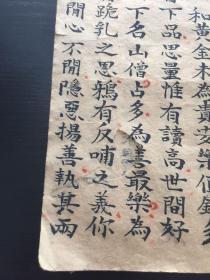 和黃金未為貴安樂值錢多
下品思量惟有讀高世間好
下名山僧占多為善最樂為
跪乳之思鴉有反哺之義你
開心不開隱惡揚善執其兩